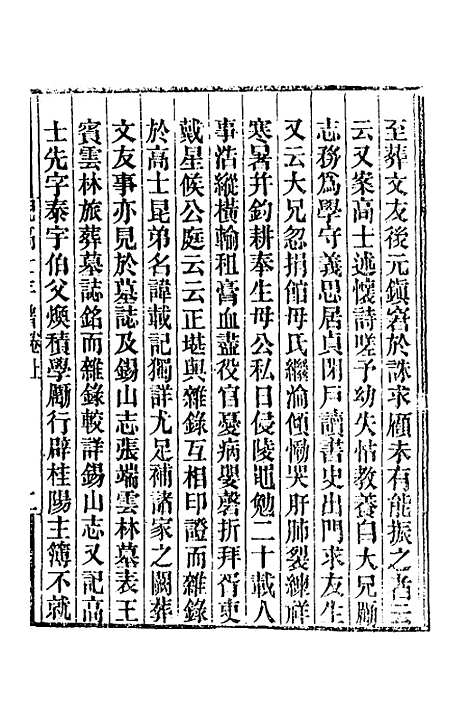 至葬文友後元鎮窘於誅求顧未有能振之者云
云又案高士述懷詩嗟予幼失怙教養自大兄勵
志務為學守義思居貞閉戶讀書史出門求友生
又云大兄忽捐館母氏繼淪傾慟哭肝肺裂練祥
寒暑并鈞耕奉生母公私日侵陵黽勉二十載人
事浩縱橫輸租膏血盡役官憂病嬰磬折拜胥吏
戴星候公庭云云正堪與雜錄互相印證而雜錄
於高士昆弟名諱載記獨詳尤足補諸家之闕葬
文友事亦見於墓誌及錫山志張端雲林墓表王
賓雲林旅葬墓誌銘而雜錄較詳錫山志又記高
士先字泰宇伯父煥積學勵行辟桂陽主簿不就
倪高士年譜卷上